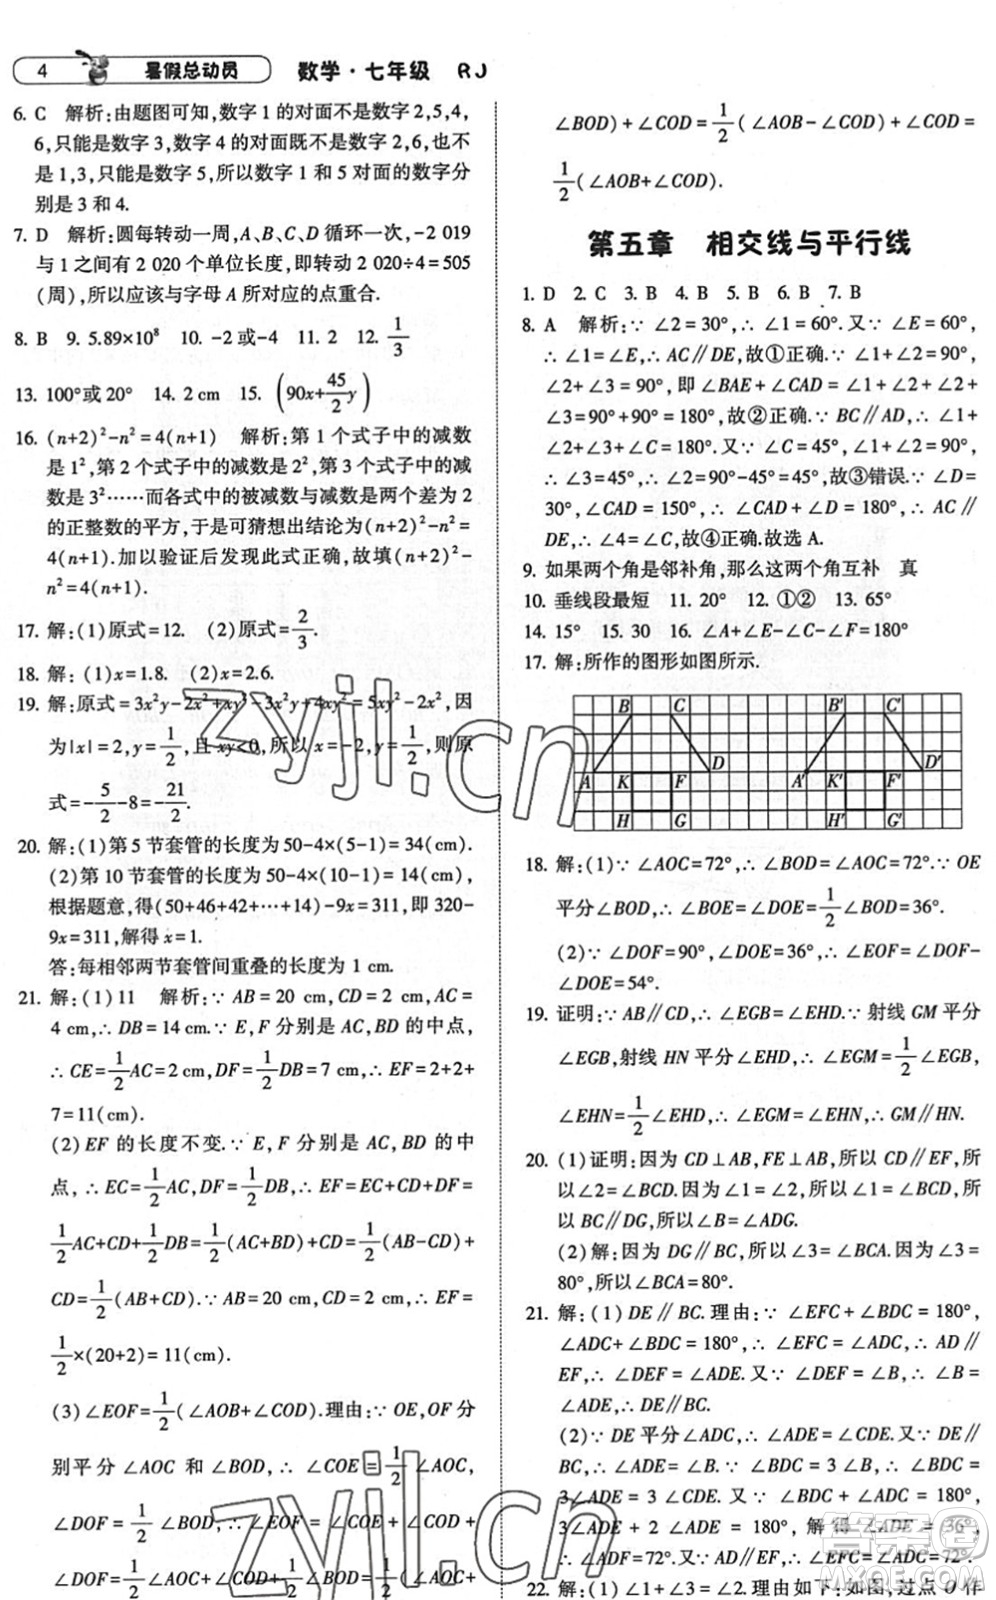 4 暑假总动员 数学·七年级 RJ
6. C 解析:由题图可知,数字1的对面不是数字2,5,4,
6,只能是数字3,数字4的对面既不是数字2,6,也不
是1,3,只能是数字5,所以数字1和5对面的数字分
别是3和4.
7. D 解析:圆每转动一周,A、B、C、D循环一次,-2 019
与1之间有2 020个单位长度,即转动2 020÷4=505
(周),所以应该与字母A所对应的点重合.
8. B 9. 5.89×10⁸ 10. -2或-4 11. 2 12. 1/3
13. 100°或20° 14. 2 cm 15. (90x+45/2y)
16. (n+2)²-n²=4(n+1) 解析:第1个式子中的减数
是1²,第2个式子中的减数是2²,第3个式子中的减
数是3²……而各式中的被减数与减数是两个差为2
的正整数的平方,于是可猜想出结论为(n+2)²-n²=
4(n+1).加以验证后发现此式正确,故填(n+2)²-
n²=4(n+1).
17. 解:(1)原式=12. (2)原式=2/3.
18. 解:(1)x=1.8. (2)x=2.6.
19. 解:原式=3x²y-2x²+xy²-3x²y+4xy²=5xy²-2x²,因
为|x|=2,y=1/2,且xy<0,所以x=-2,y=1/2,则原
式=-5/2-8=-21/2.
20. 解:(1)第5节套管的长度为50-4×(5-1)=34(cm).
(2)第10节套管的长度为50-4×(10-1)=14(cm),
根据题意,得(50+46+42+…+14)-9x=311,即320-
9x=311,解得x=1.
答:每相邻两节套管间重叠的长度为1 cm.
21. 解:(1)11 解析:∵AB=20 cm,CD=2 cm,AC=
4 cm,∴DB=14 cm.∵E,F分别是AC,BD的中点,
∴CE=1/2AC=2 cm,DF=1/2DB=7 cm,∴EF=2+2+
7=11(cm).
(2)EF的长度不变.∵E,F分别是AC,BD的中
点,∴EC=1/2AC,DF=1/2DB,∴EF=EC+CD+DF=
1/2AC+CD+1/2DB=1/2(AC+BD)+CD=1/2(AB-CD)+
CD=1/2(AB+CD).∵AB=20 cm,CD=2 cm,∴EF=
1/2×(20+2)=11(cm).
(3)∠EOF=1/2(∠AOB+∠COD).理由:∵OE,OF分
别平分∠AOC和∠BOD,∴∠COE=1/2∠AOC,
∠DOF=1/2∠BOD,∴∠EOF=∠COE+∠COD+
∠DOF=1/2∠AOC+∠COD+1/2∠BOD=1/2(∠AOC+
∠BOD)+∠COD=1/2(∠AOB-∠COD)+∠COD=
1/2(∠AOB+∠COD).
第五章 相交线与平行线
1. D 2. C 3. B 4. B 5. B 6. B 7. B
8. A 解析:∵∠2=30°,∴∠1=60°.又∵∠E=60°,
∴∠1=∠E,∴AC∥DE,故①正确.∵∠1+∠2=90°,
∠2+∠3=90°,即∠BAE+∠CAD=∠1+∠2+∠2+
∠3=90°+90°=180°,故②正确.∵BC∥AD,∴∠1+
∠2+∠3+∠C=180°.又∵∠C=45°,∠1+∠2=90°,
∴∠3=45°,∴∠2=90°-45°=45°,故③错误.∵∠D=
30°,∠CAD=150°,∴∠CAD+∠D=180°,∴AC∥
DE,∴∠4=∠C,故④正确.故选A.
9. 如果两个角是邻补角,那么这两个角互补 真
10. 垂线段最短 11. 20° 12. ①② 13. 65°
14. 15° 15. 30 16. ∠A+∠E-∠C-∠F=180°
17. 解:所作的图形如图所示.
B C B′ C′
A K F D A′ K′ F′ D′
H G H′ G′
18. 解:(1)∵∠AOC=72°,∴∠BOD=∠AOC=72°.∵OE
平分∠BOD,∴∠BOE=∠DOE=1/2∠BOD=36°.
(2)∵∠DOF=90°,∠DOE=36°,∴∠EOF=∠DOF-
∠DOE=54°.
19. 证明:∵AB∥CD,∴∠EGB=∠EHD.∵射线GM平分
∠EGB,射线HN平分∠EHD,∴∠EGM=1/2∠EGB,
∠EHN=1/2∠EHD,∴∠EGM=∠EHN,∴GM∥HN.
20. (1)证明:因为CD⊥AB,FE⊥AB,所以CD∥EF,所
以∠2=∠BCD.因为∠1=∠2,所以∠1=∠BCD,所
以BC∥DG,所以∠B=∠ADG.
(2)解:因为DG∥BC,所以∠3=∠BCA.因为∠3=
80°,所以∠BCA=80°.
21. 解:(1)DE∥BC.理由:∵∠EFC+∠BDC=180°,
∠ADC+∠BDC=180°,∴∠EFC=∠ADC,∴AD∥
EF,∴∠DEF=∠ADE.又∵∠DEF=∠B,∴∠B=
∠ADE,∴DE∥BC.
(2)∵DE平分∠ADC,∴∠ADE=∠CDE.又∵DE
∥BC,∴∠ADE=∠B.∵∠BDC=3∠B,∴∠BDC=
3∠ADE=3∠CDE.又∵∠BDC+∠ADC=180°,
3∠ADE+2∠ADE=180°,解得∠ADE=36°,
∴∠ADF=72°.又∵AD∥EF,∴∠EFC=∠ADC=72°.
22. 解:(1)∠1+∠3=∠2.理由如下:如图,过点O作
zyjl.cn
zyjl.cn
答案圈